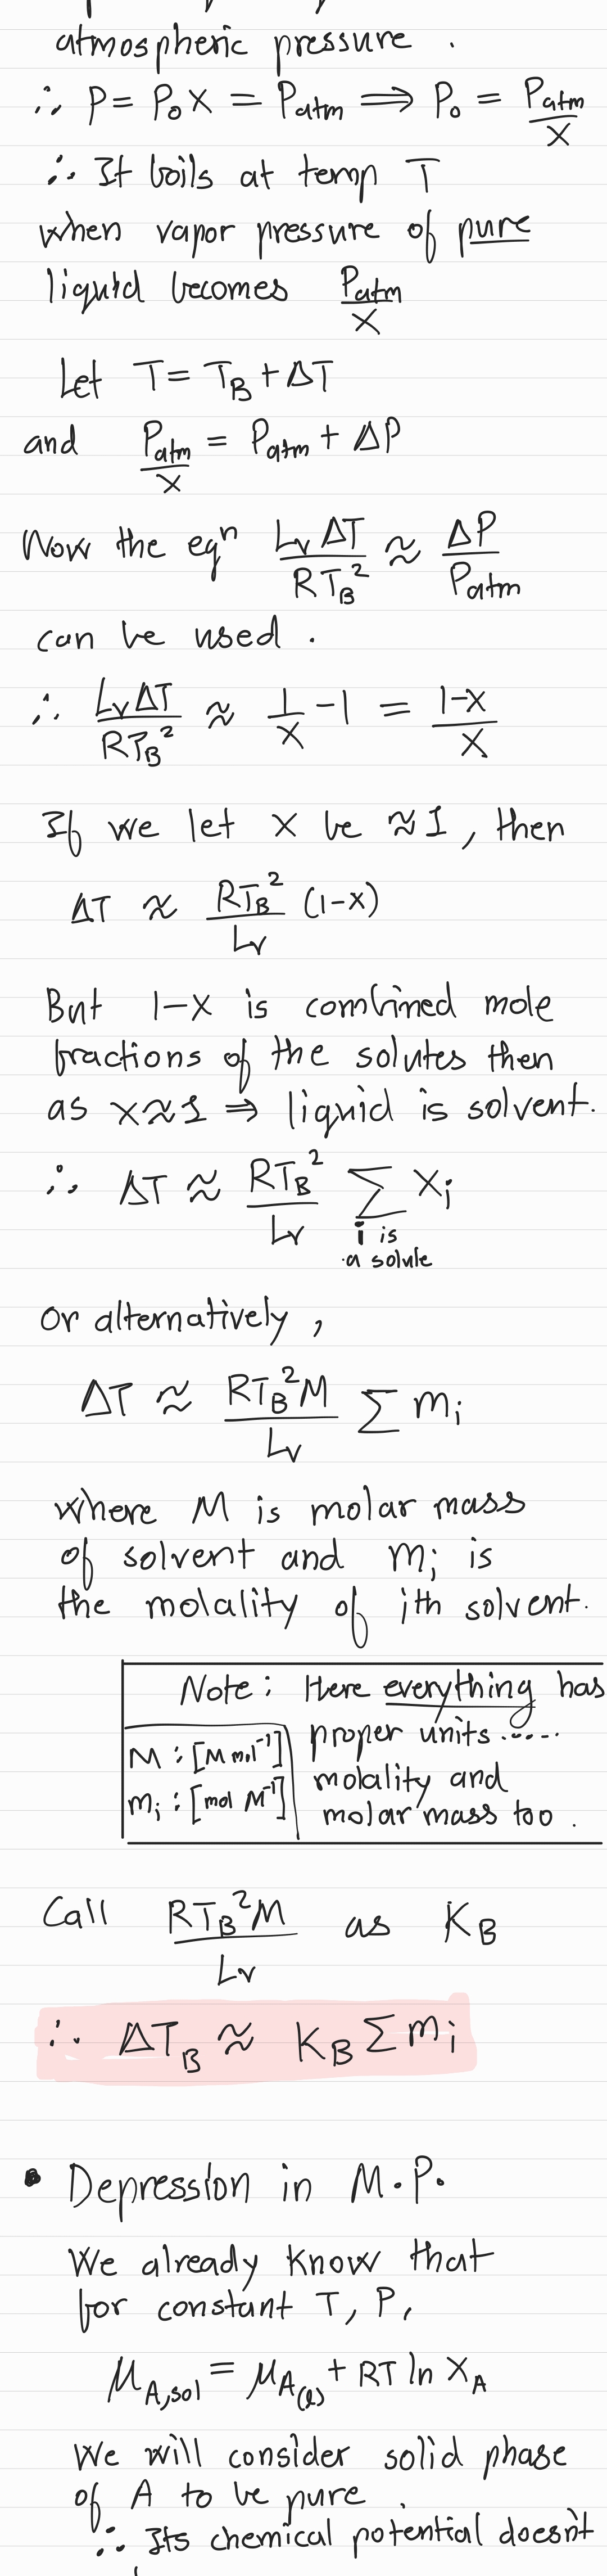 atmospheric pressure.
∴ P = P₀X = Patm ⟹ P₀ = Patm/X
∴ It boils at temp T
when vapor pressure of pure
liquid becomes Patm/X
Let T = T_B + ΔT
and Patm/X = Patm + ΔP
Now the eqⁿ LᵥΔT/RT_B² ≈ ΔP/Patm
can be used.
∴ LᵥΔT/RT_B² ≈ 1/X - 1 = 1-X/X
If we let X be ≈ 1, then
ΔT ≈ RT_B²/Lᵥ (1-X)
But 1-X is combined mole
fractions of the solutes then
as X≈1 ⇒ liquid is solvent.
∴ ΔT ≈ RT_B²/Lᵥ ∑ Xᵢ
i is
a solute
Or alternatively,
ΔT ≈ RT_B²M/Lᵥ ∑ mᵢ
where M is molar mass
of solvent and mᵢ is
the molality of ith solvent.
Note: Here everything has
proper units.....
M : [M mol⁻¹]
molality and
mᵢ : [mol M⁻¹]
molar mass too.
Call RT_B²M/Lᵥ as K_B
∴ ΔT_B ≈ K_B ∑ mᵢ
• Depression in M.P.
We already know that
for constant T, P,
μ_A,sol = μ_A(l) + RT ln X_A
We will consider solid phase
of A to be pure.
∴ Its chemical potential doesn't